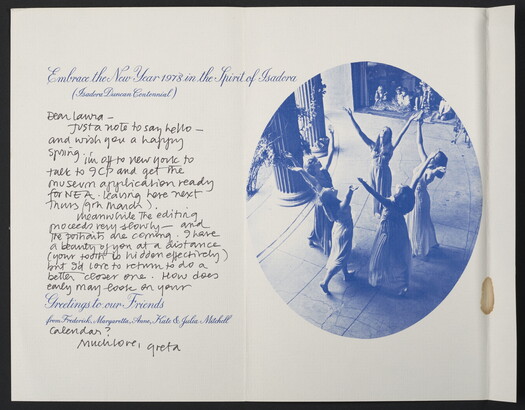 Embrace the New Year 1978 in the Spirit of Isadora
(Isadora Duncan Centennial)
Dear Laura –
Just a note to say hello –
and wish you a happy
spring. I'm off to new york to
talk to ICP and get the
museum application ready
for NEA. leaving here next
Thurs (9th march).
meanwhile the editing
proceeds very slowly – and
the portraits are coming. I have
a beauty of you at a distance
(your tooth is hidden effectively)
but I'd love to return to do a
better closer one. How does
early may look on your
Greetings to our Friends
from Frederick, Margaretta, Anne, Kate & Julia Mitchell
calendar?
Much love, greta